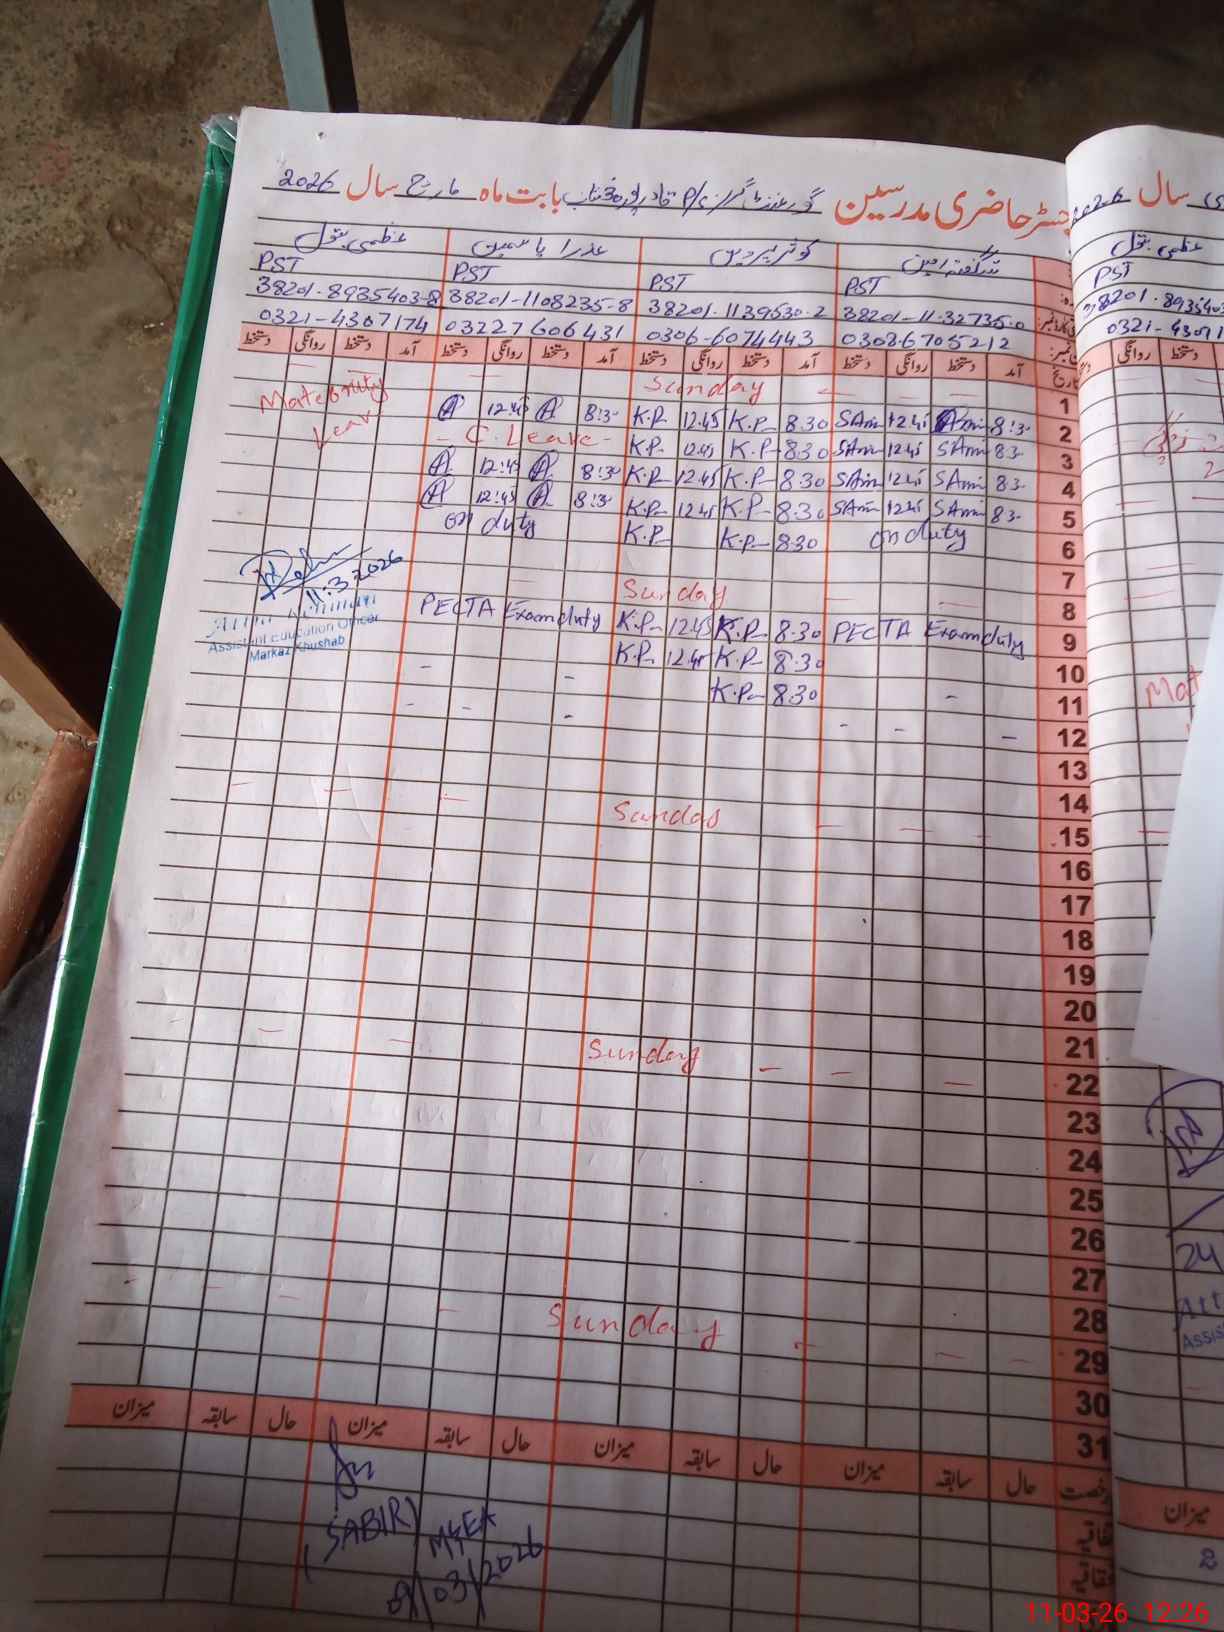 رجسٹر حاضری مدرسین گورنمنٹ گرلز P/S قادرپور بابت ماہ مارچ سال 2026
شگفتہ امین کوثر پروین عذرا یاسمین عظمی بتول
PST PST PST PST
38201-8935403-8 38201-1108235-8 38201-1139530-2 38201-11-32735-0
0321-4307174 03227606431 0306-6074443 03086705212
آمد دستخط روانگی دستخط آمد دستخط روانگی دستخط آمد دستخط روانگی دستخط آمد دستخط روانگی دستخط
Sunday 1
Maternity Leave
A 12:45 A 8:3- K.P- 12.45 K.P- 8.30 SAmi 12.45 Ami 8:3- 2
- C. Leave - K.P- 12.45 K.P- 8.30 SAmi 12.45 SAmi 83- 3
A 12:45 A 8:30 K.P- 12.45 K.P- 8.30 SAmi 12.45 SAmi 83- 4
A 12:45 A 8:3- K.P- 12.45 K.P- 8.30 SAmi 12.45 SAmi 83- 5
on duty K.P K.P- 8.30 on duty 6
7
Sunday 8
PECTA Exam duty K.P- 12.45 K.P- 8.30 PECTA Exam duty 9
K.P- 12.45 K.P- 8.30 10
K.P- 8.30 11
11.3.2026
Assistant Education Officer
Markaz Khushab
12
13
14
Sunday 15
16
17
18
19
20
21
Sunday 22
23
24
25
26
27
28
Sunday 29
30
31
رخصت حال سابقہ میزان حال سابقہ میزان حال سابقہ میزان حال سابقہ میزان
اتفاقیہ
(SABIR)
M&EA
9/03/2026
سال
عظمی بتول
PST
روانگی دستخط
24
میزان
2
11-03-26 12:26